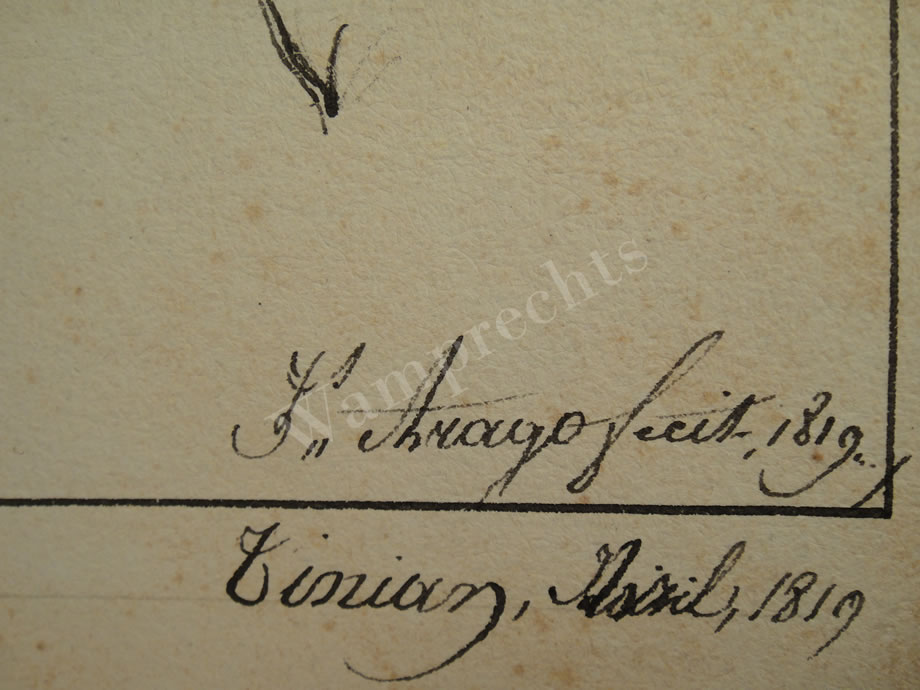 Wamprechts
Js„ Arago fecit, 1819.
Tinian, Avril, 1819